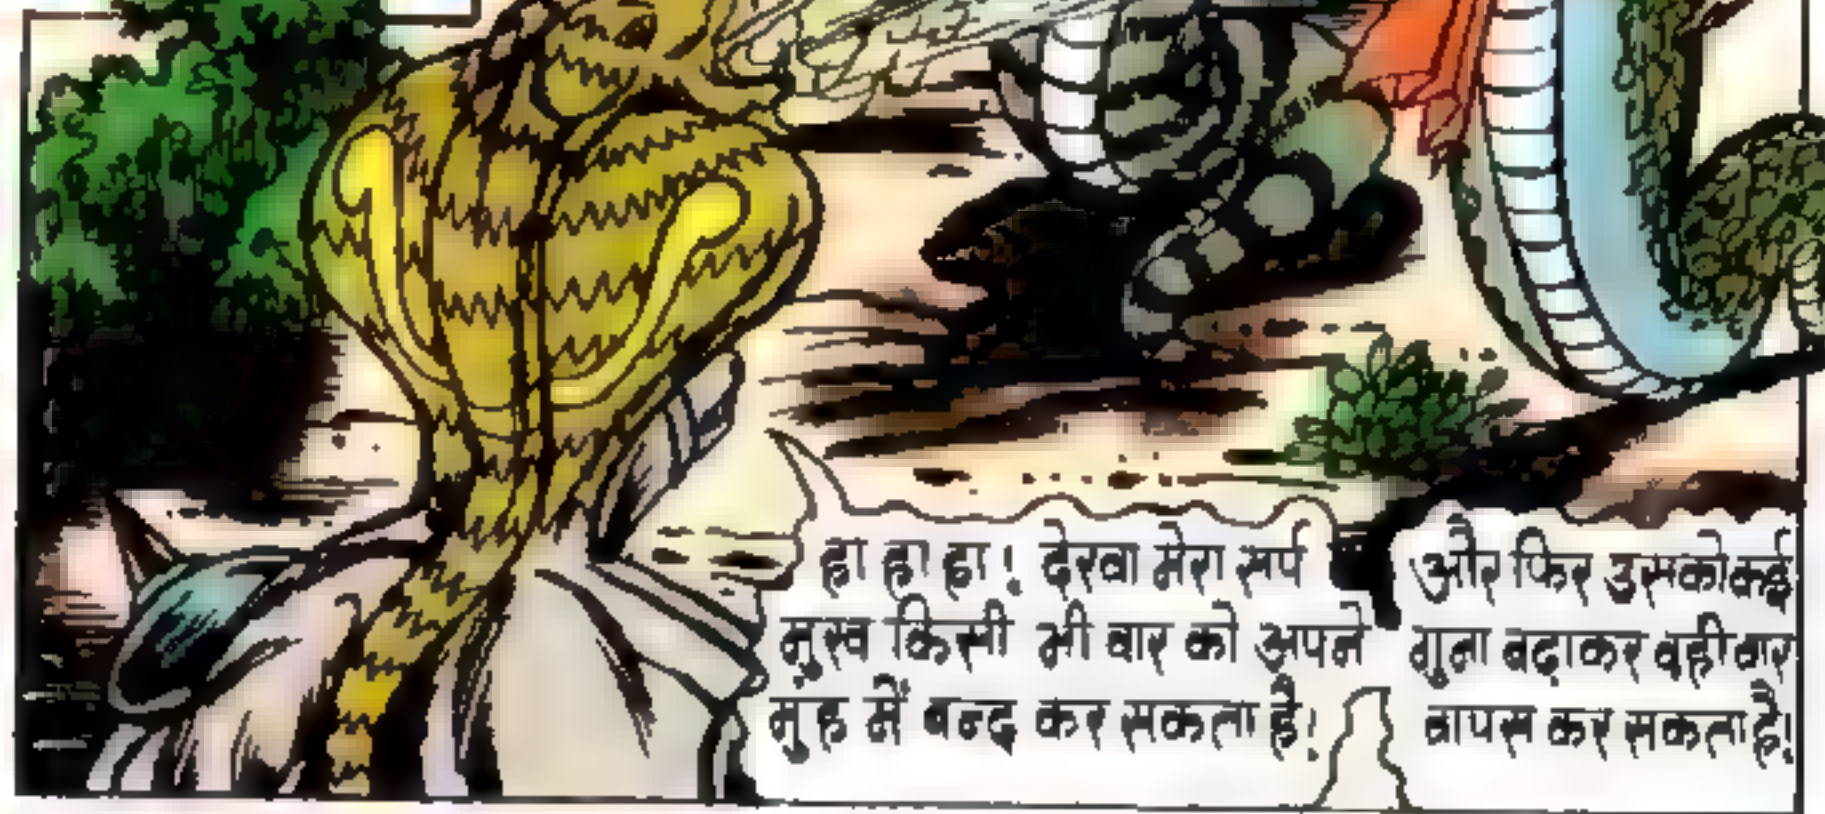 हा हा हा! देखा मेरा सर्प
मुख किसी भी वार को अपने
मुंह में बन्द कर सकता है!
और फिर उसको कई
गुना बढ़ाकर वही वार
वापस कर सकता है!